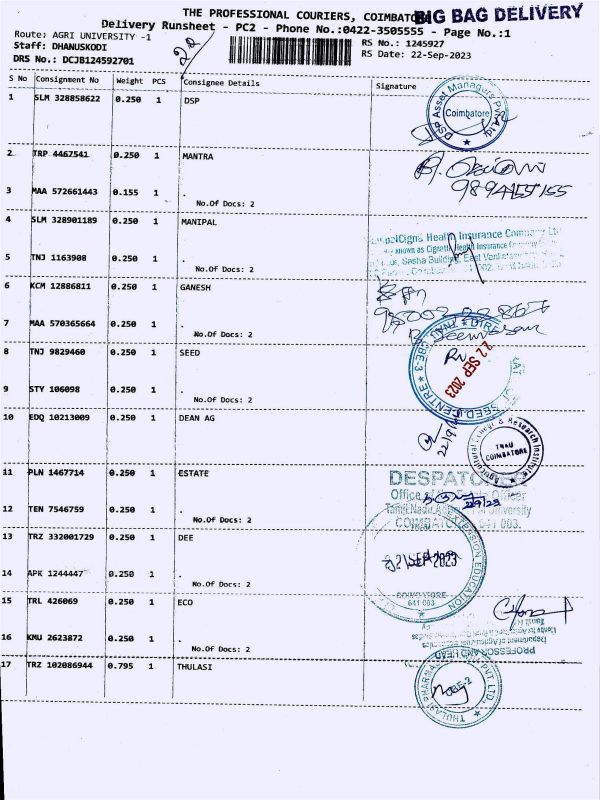 THE PROFESSIONAL COURIERS, COIMBATORE
BIG BAG DELIVERY
Delivery Runsheet - PC2 - Phone No.:0422-3505555 - Page No.:1
Route: AGRI UNIVERSITY -1
RS No.: 1245927
Staff: DHANUSKODI
RS Date: 22-Sep-2023
DRS No.: DCJB124592701
22
S No Consignment No Weight PCS Consignee Details Signature
1 SLM 328858622 0.250 1 DSP
DSP Asset Managers Pvt Ltd.
Coimbatore
2 TRP 4467541 0.250 1 MANTRA
3 MAA 572661443 0.155 1 .
No.Of Docs: 2
4 SLM 328901189 0.250 1 MANIPAL
Health Insurance Company
known as Cigna
Health Insurance
Sasha Building, East
5 TNJ 1163908 0.250 1 .
No.Of Docs: 2
6 KCM 12886811 0.250 1 GANESH
7 MAA 570365664 0.250 1 .
No.Of Docs: 2
8 TNJ 9829460 0.250 1 SEED
SEED CENTRE
22 SEP 2023
9 STY 106098 0.250 1 .
No.Of Docs: 2
10 EDQ 10213009 0.250 1 DEAN AG
22/9/
Agricultural College & Research Institute
TNAU
COIMBATORE
11 PLN 1467714 0.250 1 ESTATE
DESPATCHED
Office of Officer
Tamil Nadu University
COIMBATORE 641 003.
22/9/23
12 TEN 7546759 0.250 1 .
No.Of Docs: 2
13 TRZ 332001729 0.250 1 DEE
EXTENSION EDUCATION
COIMBATORE
641 003
14 APK 1244447 0.250 1 .
No.Of Docs: 2
15 TRL 426069 0.250 1 ECO
16 KMU 2623872 0.250 1 .
No.Of Docs: 2
PROFESSOR AND HEAD
Department of Agricultural
17 TRZ 102086944 0.795 1 THULASI
THULASI PHARMA PVT LTD.
CBE-2